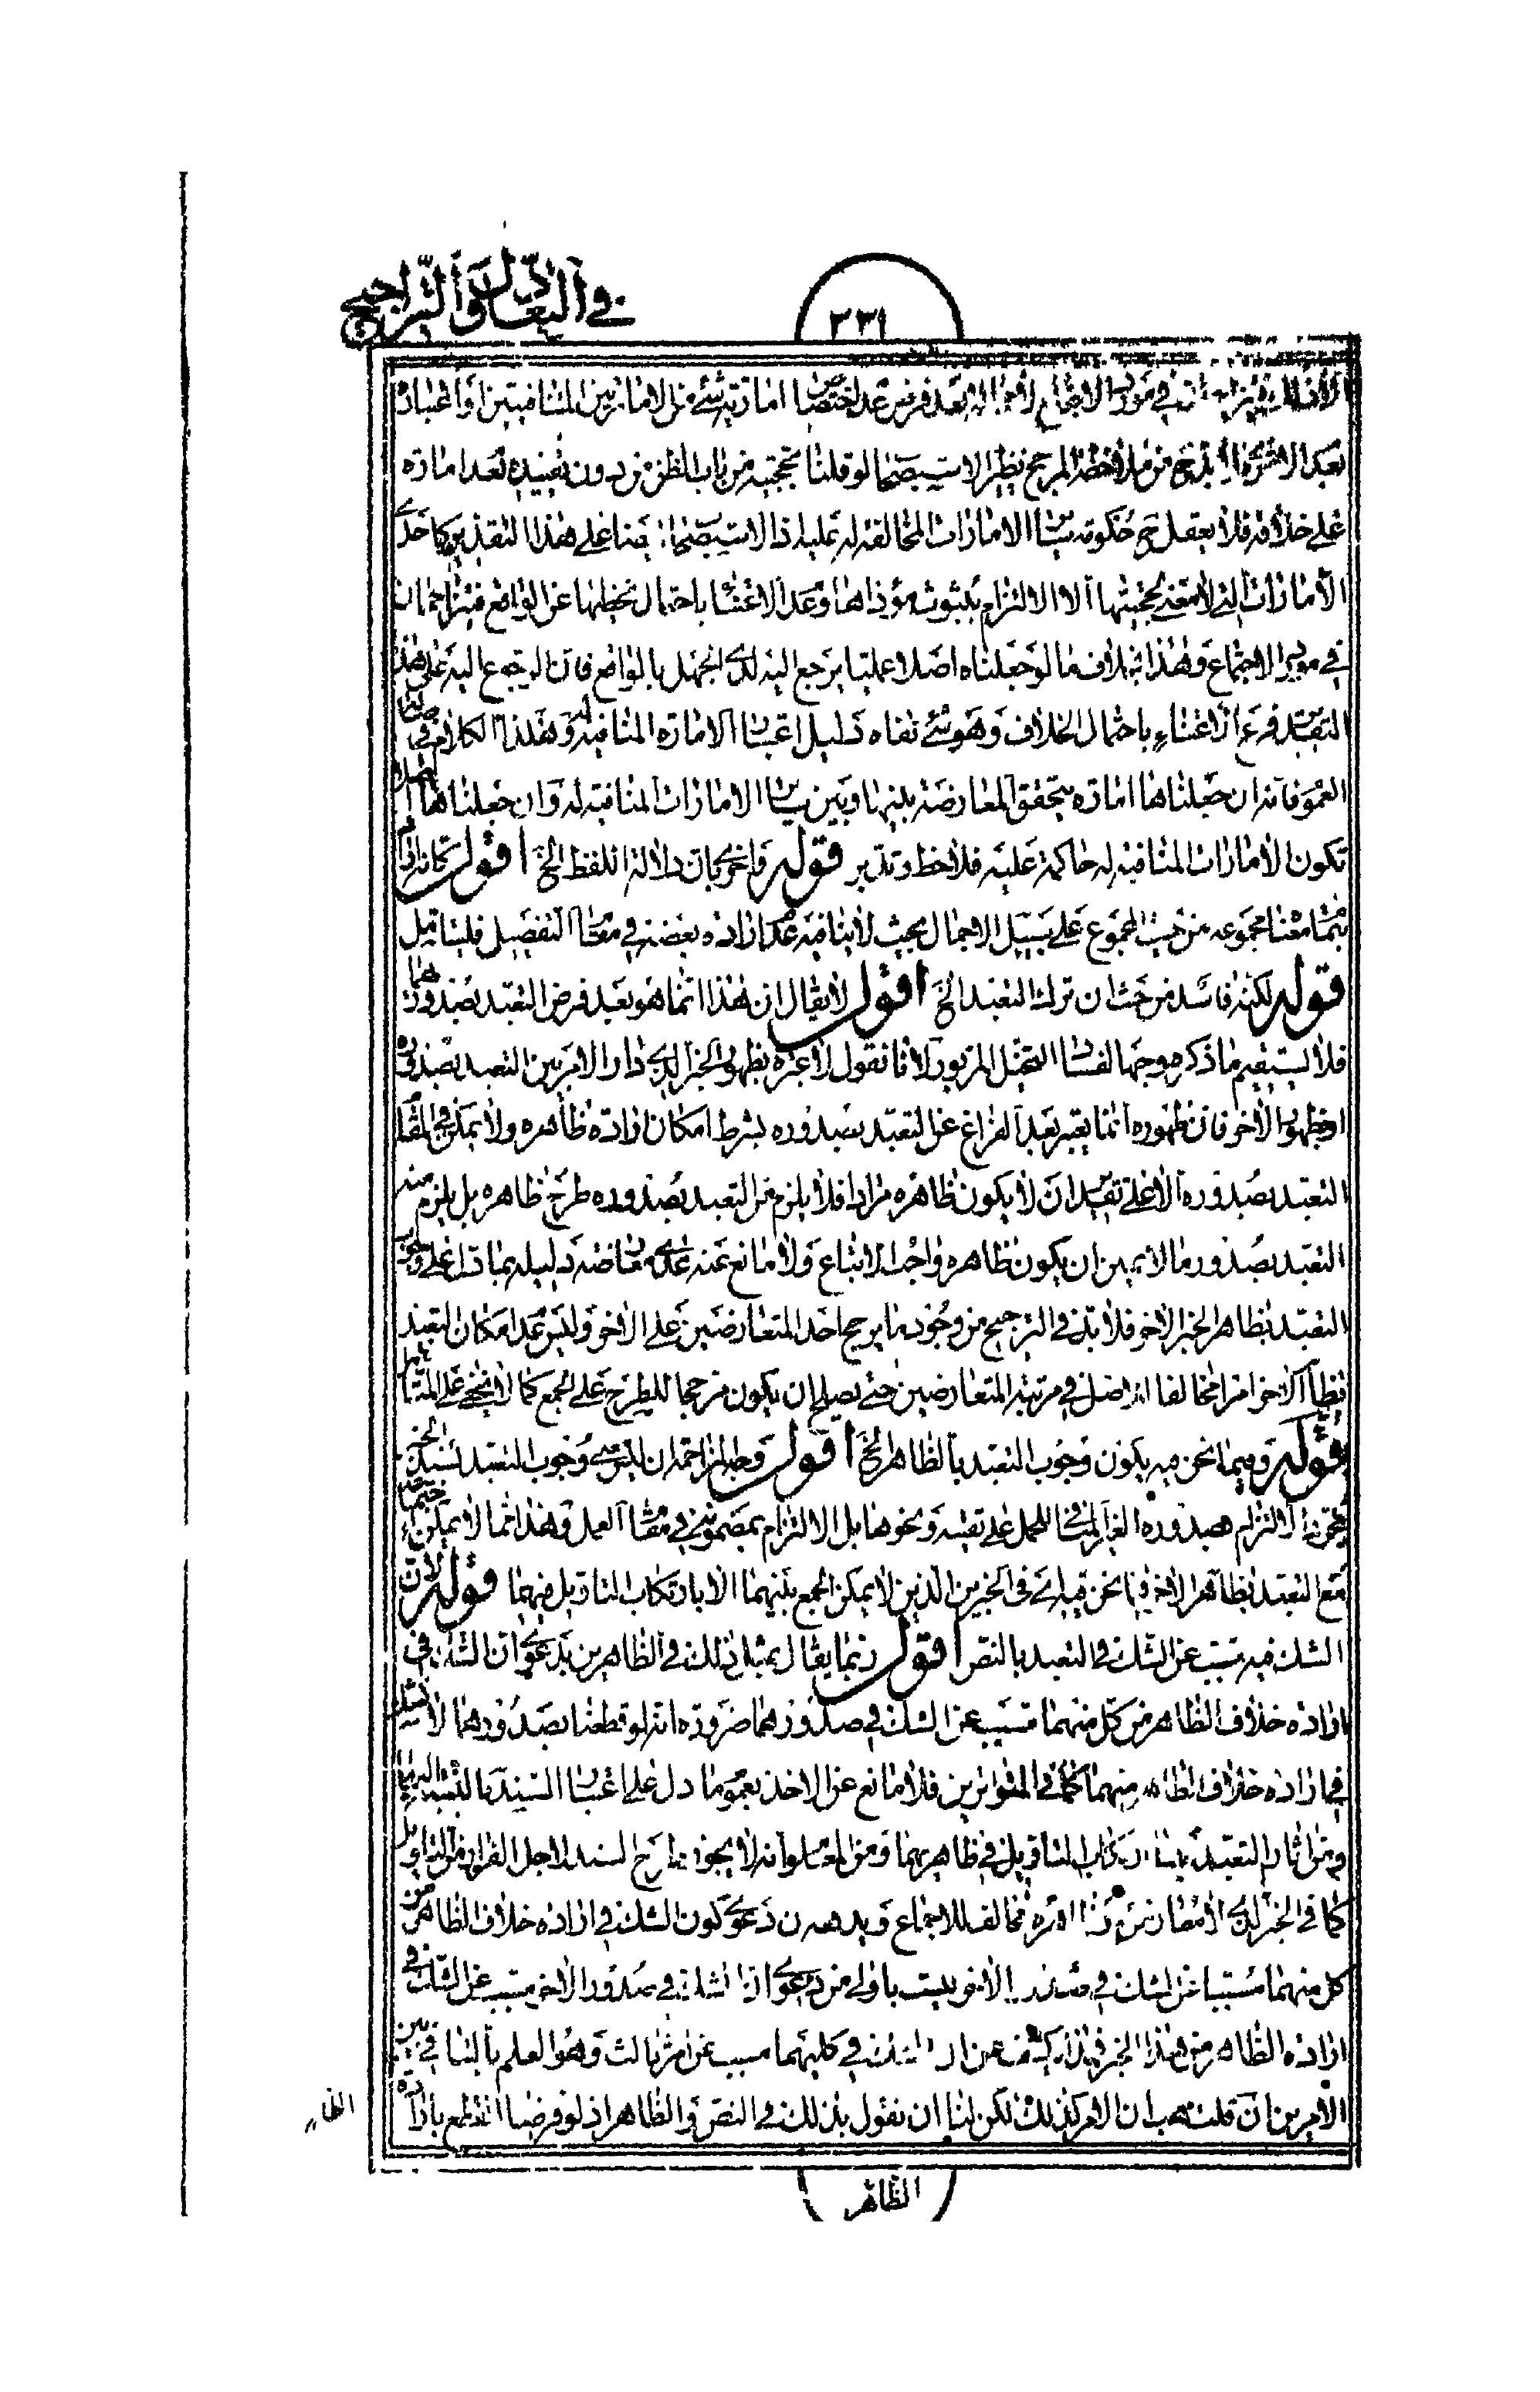 في التعادل والتراجيح
٣٣١
في مورد الاجتماع بعد فرض عدم اختصاص امارتيه شئ من الامارتين المتنافيتين واعتبار
من ملاحظة المرجح نظير الاستصحاب لو قلنا بحجيته من باب الظن من دون تقييده بعدم امارة
على خلافه فلا يعقل ح حكومة سائر الامارات المخالفة له عليه اذ الاستصحاب على هذا التقدير كاحدى
الأمارات التي لا معنى لحجيتها الا الالتزام بثبوت مؤداها وعدم الاعتناء باحتمال تخطيها عن الواقع فيتزاحمان
في مورد الاجتماع وهذا بخلاف ما لو جعلناه اصلا عمليا يرجع اليه لدى الجهل بالواقع فان الرجوع اليه على هذا
التقدير فرع الاعتناء باحتمال الخلاف وهو شئ نفاه دليل اعتبار الامارة المنافية له وهكذا الكلام في اصالة
العموم فانه ان جعلناها امارة يتحقق المعارضة بينها وبين سائر الامارات المنافية له وان جعلناها اصلا
تكون الأمارات المنافية له حاكمة عليه فلاحظ وتدبر قوله واخرى بان دلالة اللفظ الخ اقول كانه اراد
معنا مجموعه من حيث المجموع على سبيل الاجمال بحيث لا ينافيه عدم ارادة بعضه في مقام التفصيل فليتامل
قوله لكنه فاسد من حيث ان ترك التعبد الخ اقول لا يقال ان هذا انما هو بعد فرض التعبد بصدورهما
فلا يستقيم ما ذكره وجها لفساد التخيل المزبور لأنا نقول لا عبرة بظهور الخبر الذي دار الامر بين التعبد بصدوره
او بظهور الأخر فان ظهوره انما يعتبر بعد الفراغ عن التعبد بصدوره بشرط امكان ارادة ظاهره ولا يمكن في المقام
التعبد بصدوره الا على تقدير ان لا يكون ظاهره مرادا فلا يلزم من التعبد بصدوره طرح ظاهره بل يلزم منه
التعبد بصدور ما لا يتعين ان يكون ظاهره واجب الاتباع ولا مانع عنه عدى معارضة دليله بما دل على وجوب
التعبد بظاهر الخبر الاخر فلا بد في الترجيح من وجود ما يرجح احد المتعارضين على الاخر وليس عدم امكان التعبد
بظاهر الاخر امرا مخالفا للاصل في مرتبة المتعارضين حتى يصلح ان يكون مرجحا للطرح على الجمع كما لا يخفى على المتامل
قوله وفيما نحن فيه يكون وجوب التعبد بالظاهر الخ اقول وجه المزاحمة ان ليس وجوب التعبد بسند الخبر
الالتزام بصدوره الغير المنافي للحمل على تقية ونحوها بل الالتزام بمضمونه في مقام العمل وهذا مما لا يمكن
مع التعبد بظاهر الاخر فيما نحن فيه اي في الخبرين الذين لا يمكن الجمع بينهما الا بارتكاب التاويل فيهما قوله لأن
الشك فيه مسبب عن الشك في التعبد بالنص اقول ربما يقال بمثل ذلك في الظاهرين بدعوى ان الشك في
ارادة خلاف الظاهر من كل منهما مسبب عن الشك في صدورهما ضرورة انه لو قطعنا بصدورهما لا نشك
في ارادة خلاف الظاهر منهما كما في المتواترين فلا مانع عن الاخذ بعموم ما دل على اعتبار السند بالنسبة اليهما
ومن اثار التعبد ارتكاب التاويل في ظاهريهما ومن المعلوم انه لا يجوز طرح السند لاجل الفرار من التاويل
كما في الخبر الذي لا معارض له مخالف للاجماع ويدفعه ان دعوى كون الشك في ارادة خلاف الظاهر من
كل منهما مسببا عن الشك في صدور الأخر ليست باولى من دعوى ان الشك في صدور الأخر مسبب عن الشك في
ارادة الظاهر من هذا الخبر عن ان الشك في كليهما مسبب عن امر ثالث وهو العلم بالتنافي بين
الأمرين ان قلت هب ان الامر كذلك لكن لنا ان نقول بذلك في النص والظاهر اذ لو فرضنا القطع بارادة
الظاهر
الظاهر